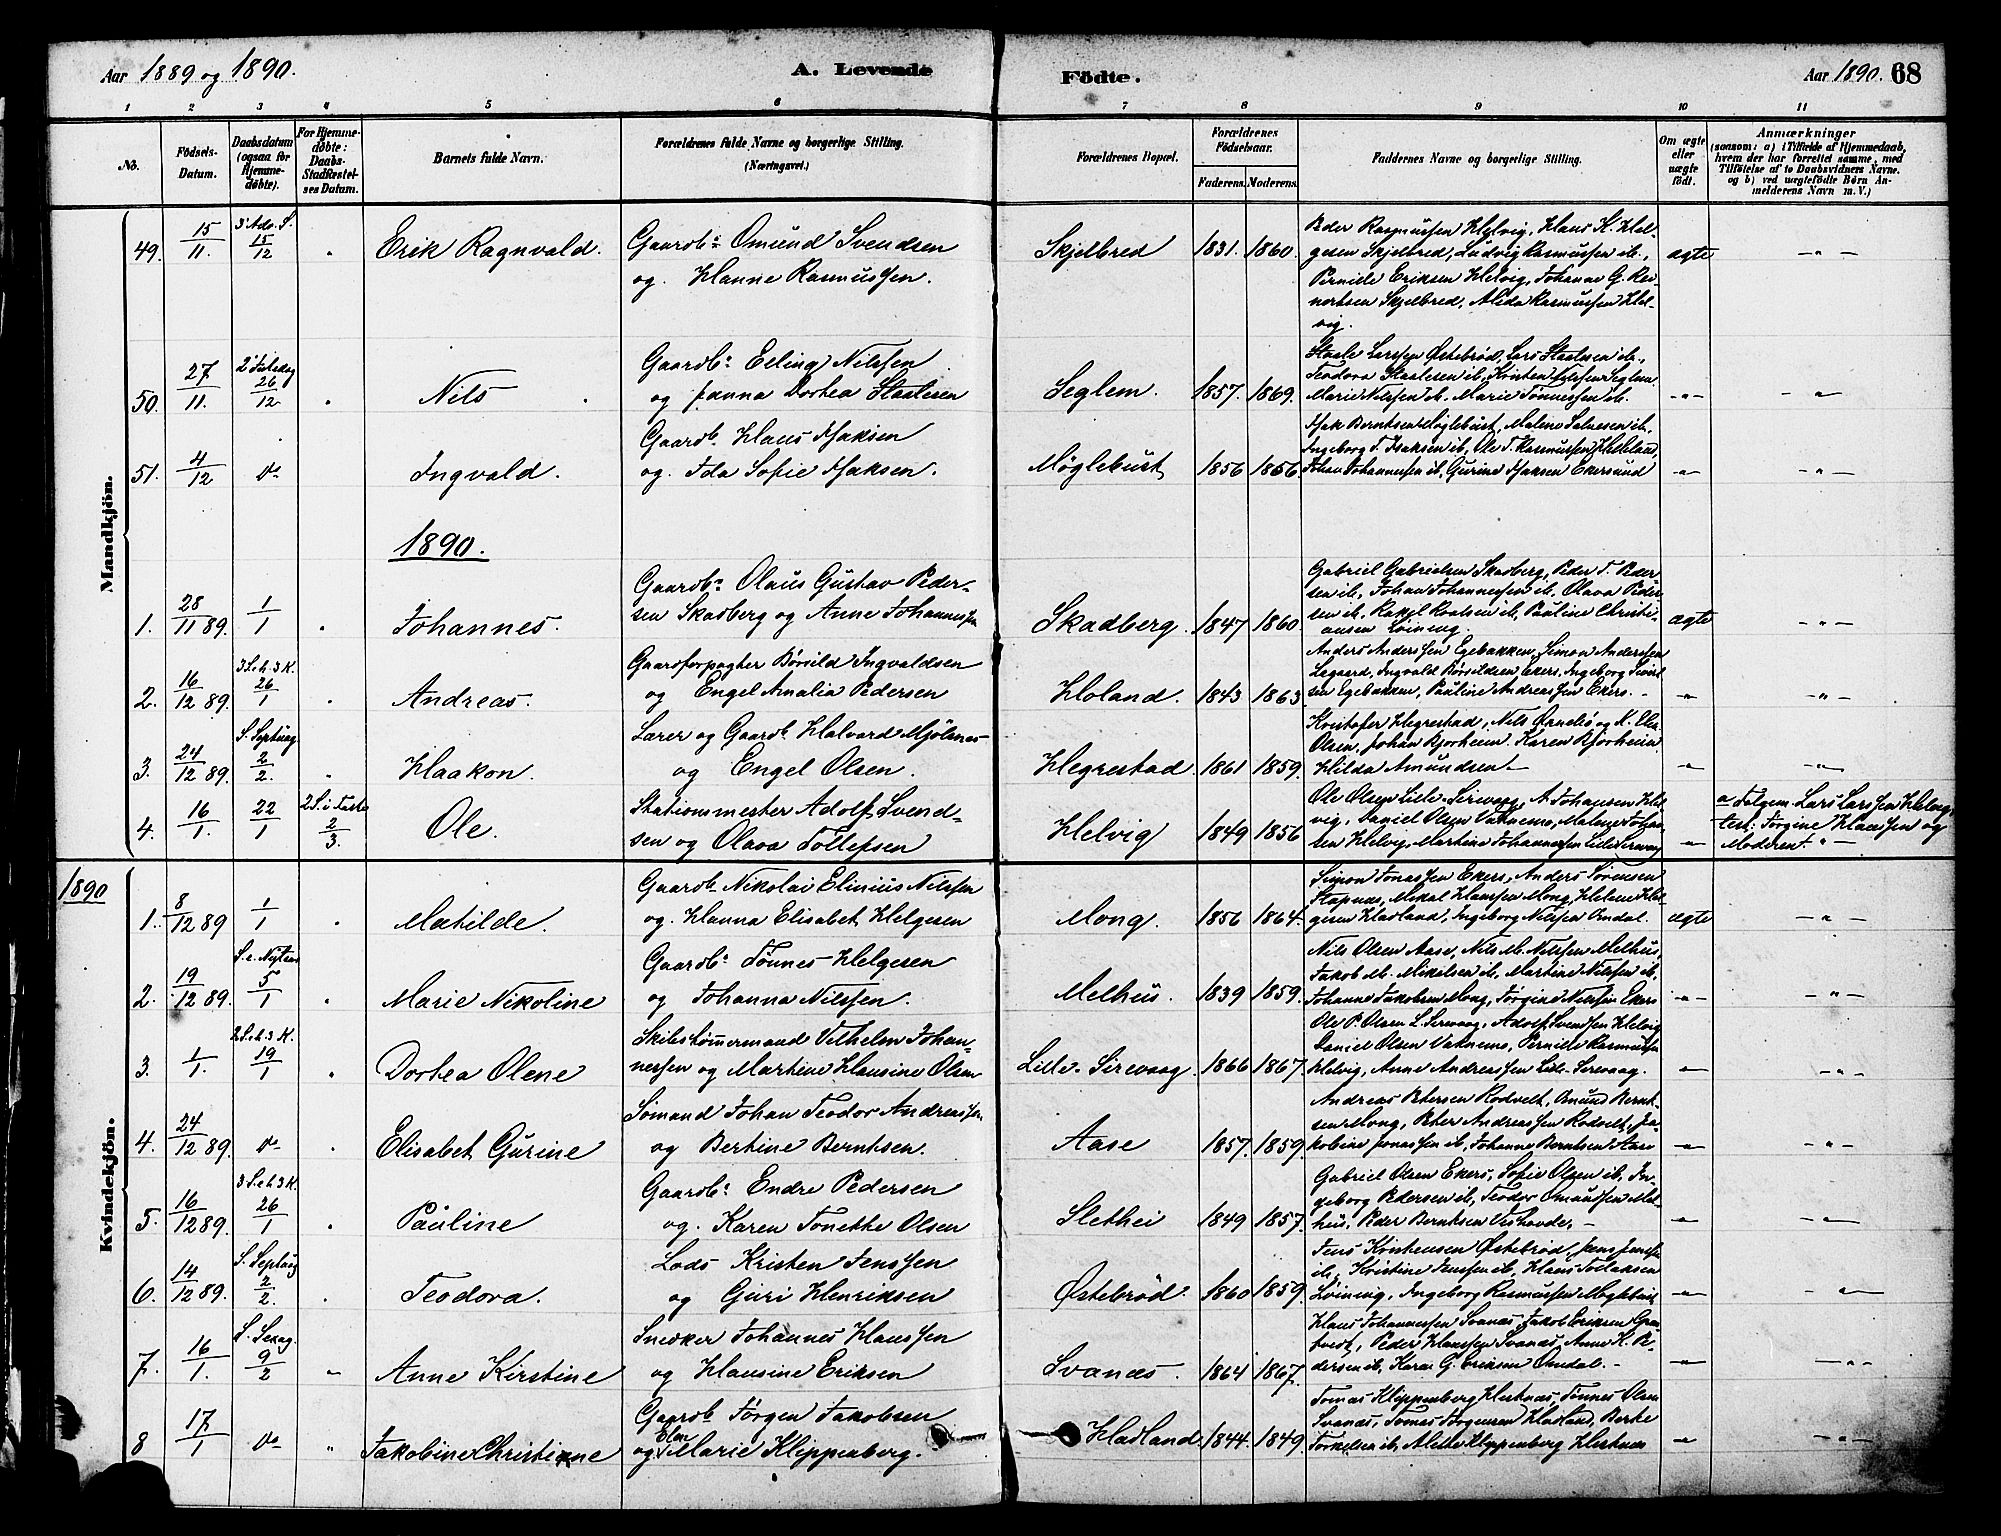 Aar 1889 og 1890.
A. Levende
Födte.
Aar 1890. 68
1 2 3 4 5 6 7 8 9 10 11
No.
Födsels-Datum.
Daabsdatum (ogsaa for Hjemmedöbte).
For Hjemmedöbte: Daabs-Stadfæstelses Datum.
Barnets fulde Navn.
Forældrenes fulde Navne og borgerlige Stilling. (Næringsvei.)
Forældrenes Bopæl.
Forældrenes Födselsaar.
Faderens. Moderens.
Faddernes Navne og borgerlige Stilling.
Om ægte eller uægte födt.
Anmærkninger
(saasom: a) i Tilfælde af Hjemmedaab, hvem der har forrettet samme, med Tilföielse af to Daabsvidners Navne. og b) ved uægtefödte Börn Anmelderens Navn m. V.)
Mandkjön.
49. 15/11. 3' Adv. S. 15/12 " Erik Ragnvald. Gaardbr. Omund Svendsen
og Hanne Rasmussen. Skjelbred 1831. 1860. ægte
Peder Rasmussen Helvig, Hans K. Hel-
gesen Skjelbred, Ludvig Rasmussen ib.,
Pernille Eriksen Helvig, Johanne G. Rei-
nertsen Skjelbred, Alida Rasmussen Hel-
vig.
50. 27/11. 2' Juledag 26/12 " Nils Gaardbr. Elling Nilssen
og Janna Dortea Staalesen Seglem. 1857. 1869. - " -
Staale Larssen Østebrød, Lars Staalesen ib.,
Teodora Staalesen ib, Kristen Nilssen Seglem.
Marie Nilssen ib. Marie Tønnessen ib.
51. 4/12 do Ingvald. Gaardbr. Hans Isaksen
og Ida Sofie Isaksen. Møglebust 1856 1856. - " -
Isak Berntsen Møglebust, Malene Salvesen ib.,
Ingeborg T. Isaksen ib, Ole T. Rasmussen Helleland,
Johan Johannessen ib, Gurine Isaksen Ekersund
1890.
1. 28/11 89. 1/1 " Johannes. Gaardbr. Olaus Gustav Peder-
sen Skadberg og Anne Johannessen Skadberg. 1847 1860. ægte
Gabriel Gabrielsen Skadberg, Peder T. Peder-
sen ib., Johan Johannessen ib, Olava Peder-
sen ib, Rakel Roalsen ib, Pauline Christi-
ansen Løining.
2. 16/12 89. 3 S. e. h. 3 K. 26/1 " Andreas. Gaardforpagter Børild Ingvaldsen
og Engel Amalia Pedersen Holand. 1843 1863. - " -
Anders Anderssen Egebakken, Simon Anderssen
Legaard, Ingvald Børildsen Ekers, Ingeborg
sen Egebakken, Pauline Andreassen Ekers. -
3. 24/12 89. S. Septuag 2/2. " Haakon. Lærer og Gaardbr. Halvard Mjølsnes
og Engel Olsen. Hegrestad 1861 1859. - " -
Kristofer Hegrestad, Nils
Olsen, Johan Bjorheim. Karen Bjorheim
Hilda Amundsen. -
4. 16/1. 22/1 2 S. i Faste 2/3. Ole. Stationsmester Adolf Svend-
sen og Olava Tollefsen Helvig 1849 1856 - " -
Ole Olsen Lille-Sirevaag, A. Johansen Hel-
vig, Daniel Olsen Vatnemo, Malene Johan-
sen Helvig, Martine Johannessen Lille Sirevaag
a Lars Larssen Helvig,
test: Jørgine Klaussen og
Moderen.
Kvindekjön.
1890
1. 8/12 89 1/1 " Matilde. Gaardbr. Nikolai Elinius Nilssen
og Hanna Elisabet Helgesen Mong. 1856 1864. ægte
Simon Jonassen Ekers, Anders Tørresen
Stapnæs, Mikal Hanssen Mong, Helene Hel-
gesen Hadland, Ingeborg Nilssen Omdal.
2. 19/12 89. S. e. Nytaar 5/1 " Marie Nikoline Gaardbr. Tønnes Helgesen
og Johanna Nilssen. Melhus. 1839 1859. - " -
Nils Olsen Aase, Nils M. Nilssen Melhus,
Jakob M. Mikalsen ib, Martine Nilssen ib,
Johanne Jakobsen Mong, Jørgine Nilssen Ekers
3. 1/1. 2 S. e. h. 3 K. 19/1 " Dortea Olene Skibstømmermand Vilhelm Johan-
nessen og Martine Klausine Olsen Lille-Sirevaag 1866 1867 - " -
Ole P. Olsen L. Sirevaag, Adolf Svendsen Helvig
Daniel Olsen Vatnemo, Pernille Rasmussen
Helvig, Anne Andreassen Lille-Sirevaag.
4. 24/12 89. do " Elisabet Gurine Sømand Johan Teodor Andreassen
og Bertine Berntsen. Aase 1857. 1859. - " -
Andreas Petersen Rodvelt, Omund Bernt-
sen Mong, Peter Andreassen Rodvelt, Ja-
kobine Jonassen ib, Johanne Berntsen Aase
5. 16/12 89. 3 S. e. h. 3 K. 26/1 " Pauline Gaardbr. Endre Pedersen
og Karen Tonette Olsen Slethei 1849 1857. - " -
Gabriel Olsen Ekers, Sofie Olsen ib, In-
geborg Pedersen ib, Teodor Omundsen Mel-
hus, Peder Berntsen Veshovde. -
6. 14/12 89. S. Septuag 2/2. " Teodora. Lods Kristen Jenssen
og Guri Henriksen Østebrød. 1860 1859. - " -
Jens Kristensen Østebrød, Jens Jenssen
ib, Kristine Jenssen ib, Klaus Tollaksen
Løining, Ingeborg Rasmussen Møglebust
7. 16/1. S. Sexag. 9/2 " Anne Kirstine Snedker Johannes Hanssen
og Klausine Eriksen Svanæs. 1864 1867. - " -
Hans Johannessen Svanæs, Jakob Eriksen
Peder Hanssen Svanæs, Anne K. Pe-
dersen ib, Karen G. Eriksen Omdal. -
8 17/1 do " Jakobine Christine Gaardbr. Jørgen Jakobsen
og Elen Marie Klippenberg. Hadland 1844. 1849. - " -
Tomas Klippenberg Hestnæs, Tønnes Olsen
Svanæs, Tomas Jørgensen Hadland, Berte
Torkelsen ib, Alette Klippenberg Hestnæs